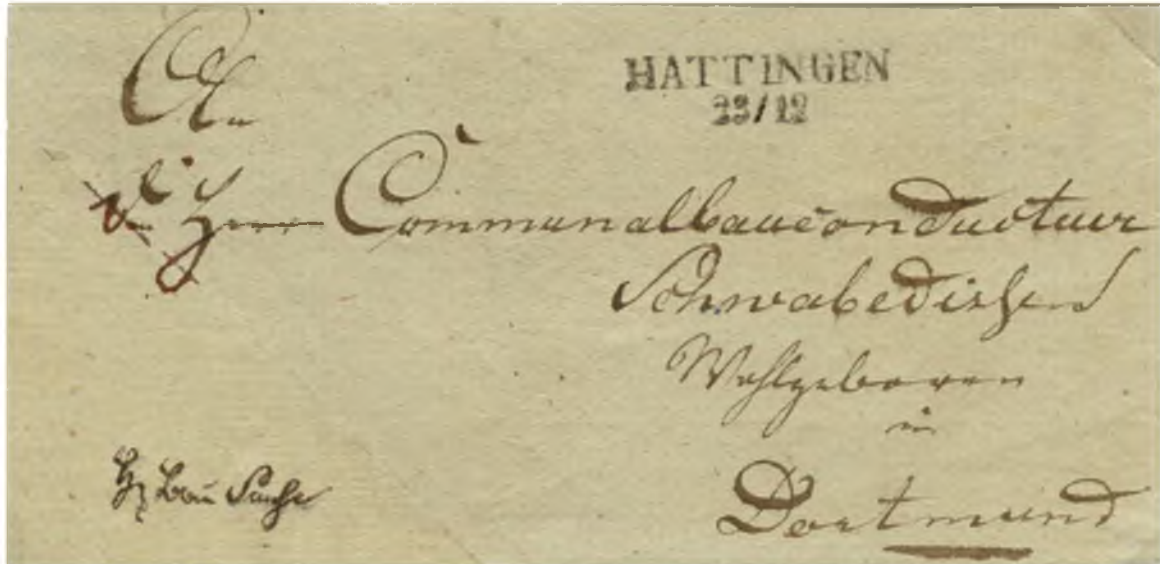 An
HATTINGEN
23/12
den Herrn Communalbauconducteur
Schwabedissen
Wohlgeboren
in
Dortmund
Bau Sache